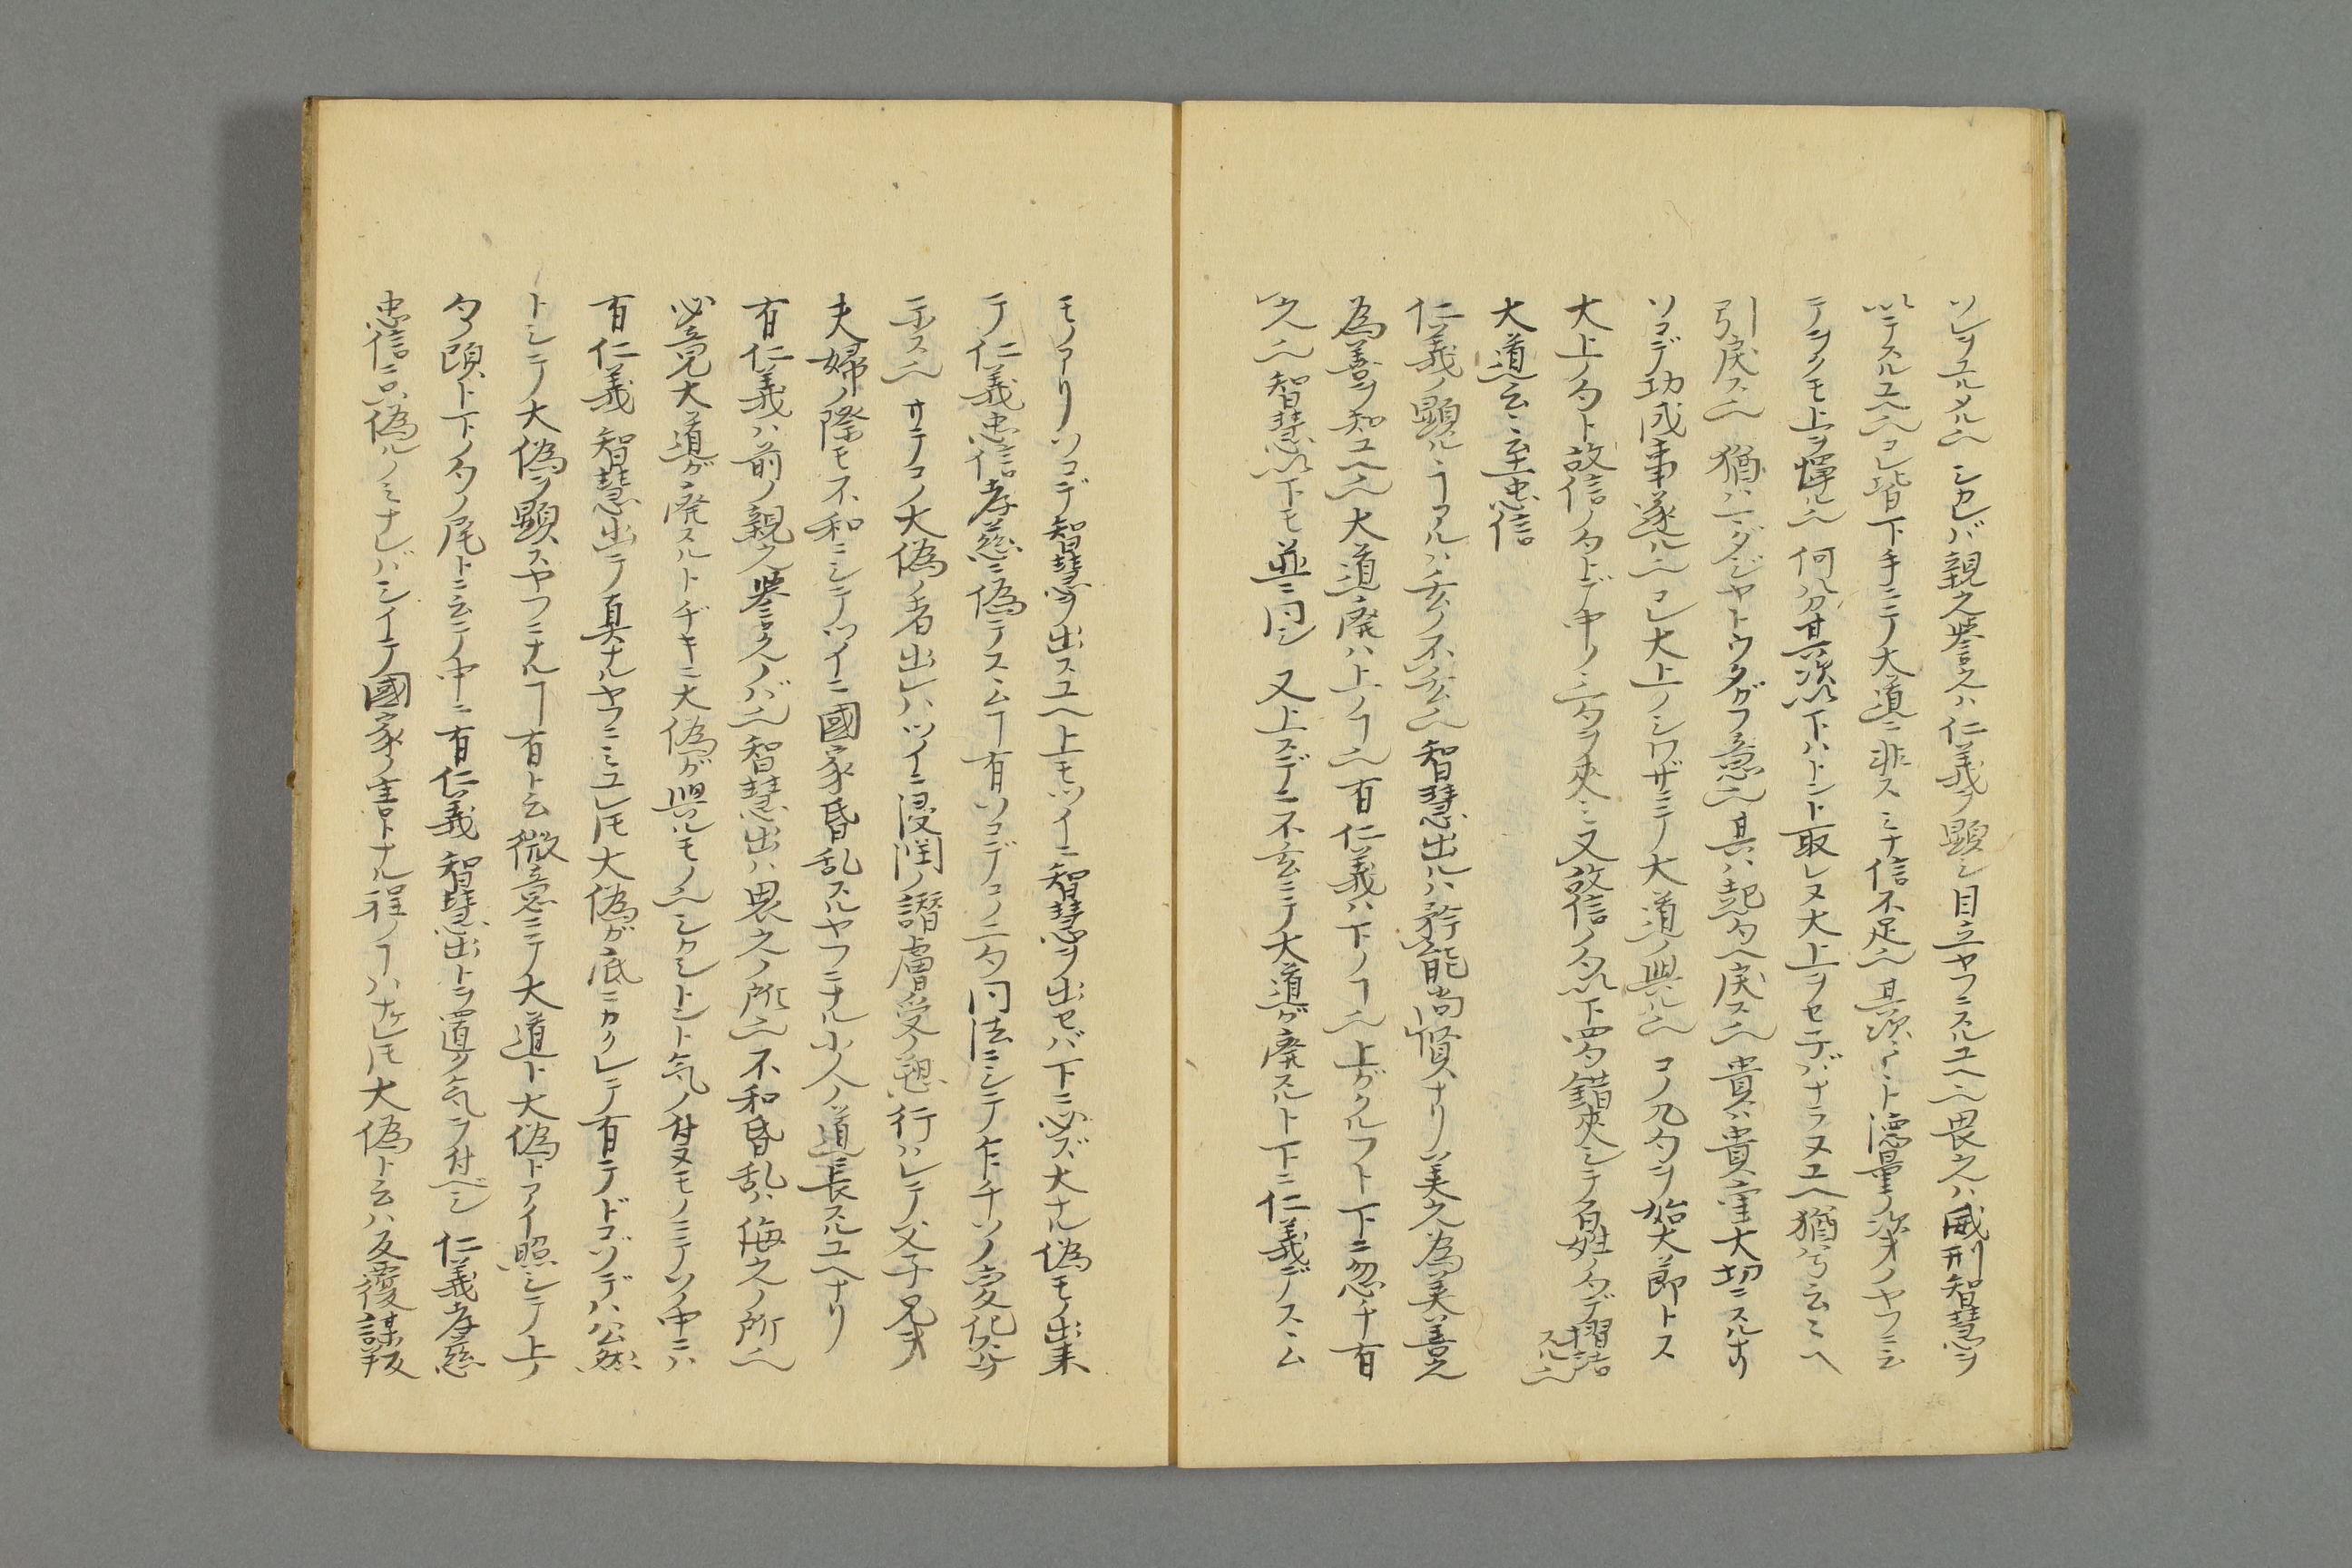 ソレヲユルメル𪜈シカレバ親之誉之ハ仁義ヲ顕シ目立ヤフニスルユヘ𪜈畏之ハ威刑智慧ヲ
以テスルユヘ𪜈コレ皆下手ニテ大道ニ非スミナ信不足𪜈其次〻〻ト徳量ノ次オノヤフニ云
テヲクモ上ヲ憚ル𪜈何分其次以下ハトント取レヌ大上ヲセデバナラヌユヘ猶兮云ミヘ
引戻ス𪜈猶ハマダジヤトウタガフ意𪜈其ハ起句ヘ戻ス𪜈貴ハ貴宝大切ニスルナリ
ソコデ功成事遂ル𪜈コレ大上ノシワザニテ大道ノ興ル𪜈コノ九句ヲ始大節トス
大上ノ句ト故信ノ句トデ中ノ三句ヲ夾ミ又故信ノ句以下四句錯夾シテ百姓ノ句デ摺詰スル𪜈
大道云〻至忠信
仁義ノ顕ルヽヿアルハ玄ノ不玄𪜈智慧出ルハ矜能尚賢ナリ美之為美善之
為善ヲ知ユヘ𪜈大道廃ハ上ノヿ𪜈有仁義ハ下ノヿ𪜈上ガクルフト下ニ忽チ有
ル𪜈智慧以下モ並ニ同シ又上スデニ不玄ニテ大道ガ廃スルト下ニ仁義デスヽム
モノアリソコデ智慧ヲ出スユヘ上モツイニ智慧ヲ出セバ下ニ必ズ大ナル偽モノ出来
テ仁義忠信孝慈ニ偽テスヽムヿ有ソコデコノ二句同法ニシテ乍チソノ変化ヲ
示ス𪜈サテコノ大偽ノ者出レハツイニ浸潤ノ譖膚受ノ愬行ハレテ父子兄弟
夫婦ノ際モ不和ニシテツイニ國家昏乱スルヤフニナル小人ノ道長スルユヘナリ
有仁義ハ前ノ親之誉之ノバ𪜈智慧出ハ畏之ノ所𪜈不和昏乱ハ侮之ノ所𪜈
必竟大道ガ廃スルトヂキニ大偽ガ興ルモノ𪜈シカシトント気ノ付ヌモノニテソノ中ニハ
有仁義智慧出テ真ナルヤフニミユレ𪜈大偽ガ底ニカクレテ有テドコゾデハ公然
トシテ大偽ヲ顕スヤフニナルヿ有ト云微意ニテ大道ト大偽トアイ照シテ上ノ
句ノ頭ト下ノ句ノ尾トニ云テ中ニ有仁義智慧出トヲ置ク気ヲ付ベシ仁義孝慈
忠信ニ只偽ルノミナレバシイテ國家ノ害トナル程ノヿハナケレ𪜈大偽ト云ハ反覆謀叛